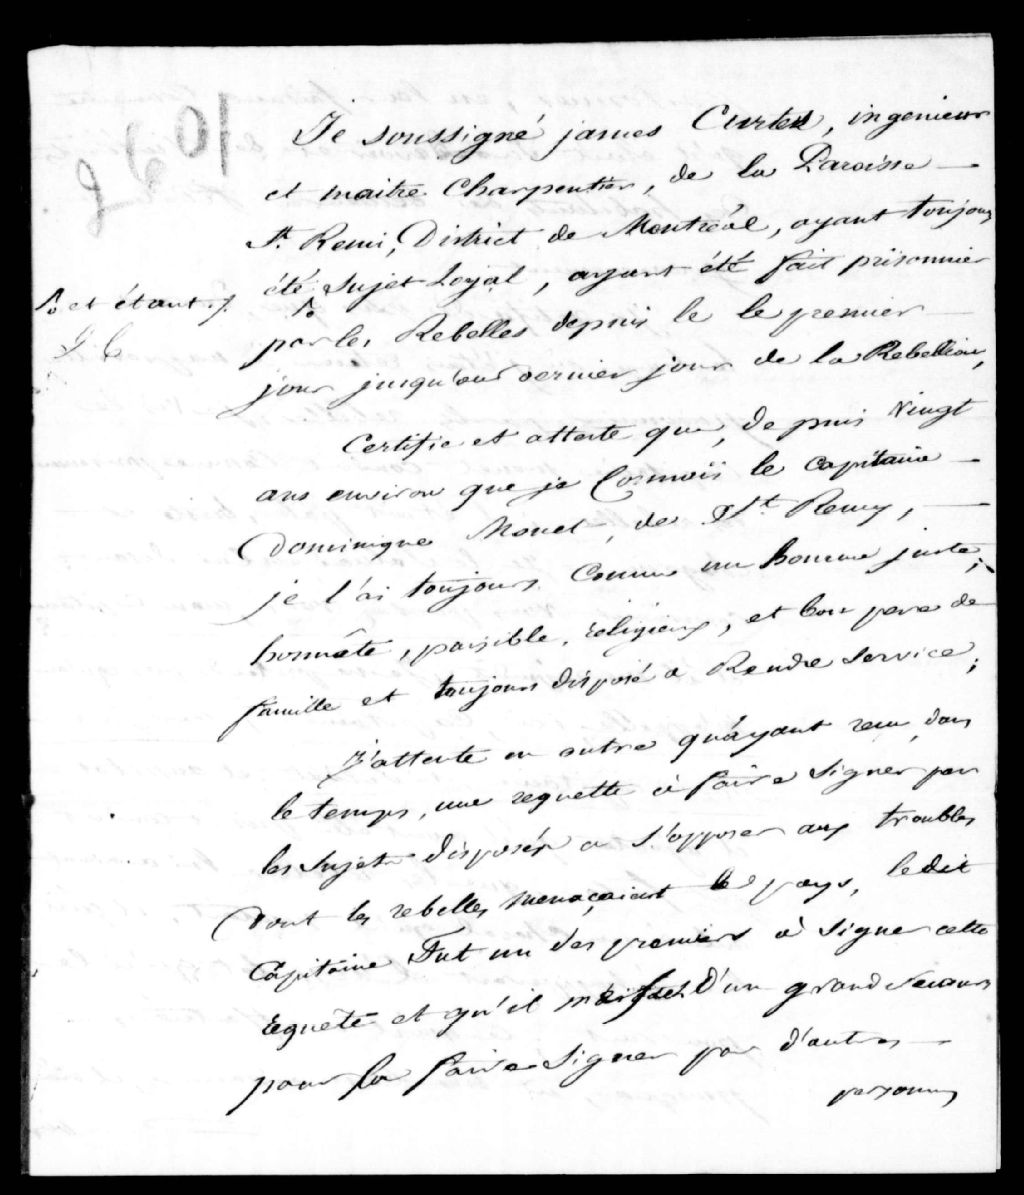 Je soussigné james Curten, ingenieur
et maitre Charpentier, de la Paroisse
St. Remi, District de Montréal, ayant toujours
été Sujet Loyal, ayant été fait prisonnier
et étant
J. C
par les Rebelles depuis le le premier
jour jusqu'au dernier jour de la Rebellion,
Certifie et atteste que, depuis Vingt
ans environ que je Connois le Capitaine
Dominique Monet, de St. Remy,
je l'ai toujours Connu un homme juste,
honnête, paisible, religieux, et bon pere de
famille et toujours disposé a Rendre Service;
J'atteste en outre qu'ayant reçu, dans
le temps, une requette à faire Signer par
les Sujets disposés a s'opposer aux troubles
dont les rebelles menaçaient le pays, ledit
Capitaine Fut un des premiers à Signer cette
requête et qu'il m'a été d'un grand Secours
pour la faire Signer par d'autres
personnes